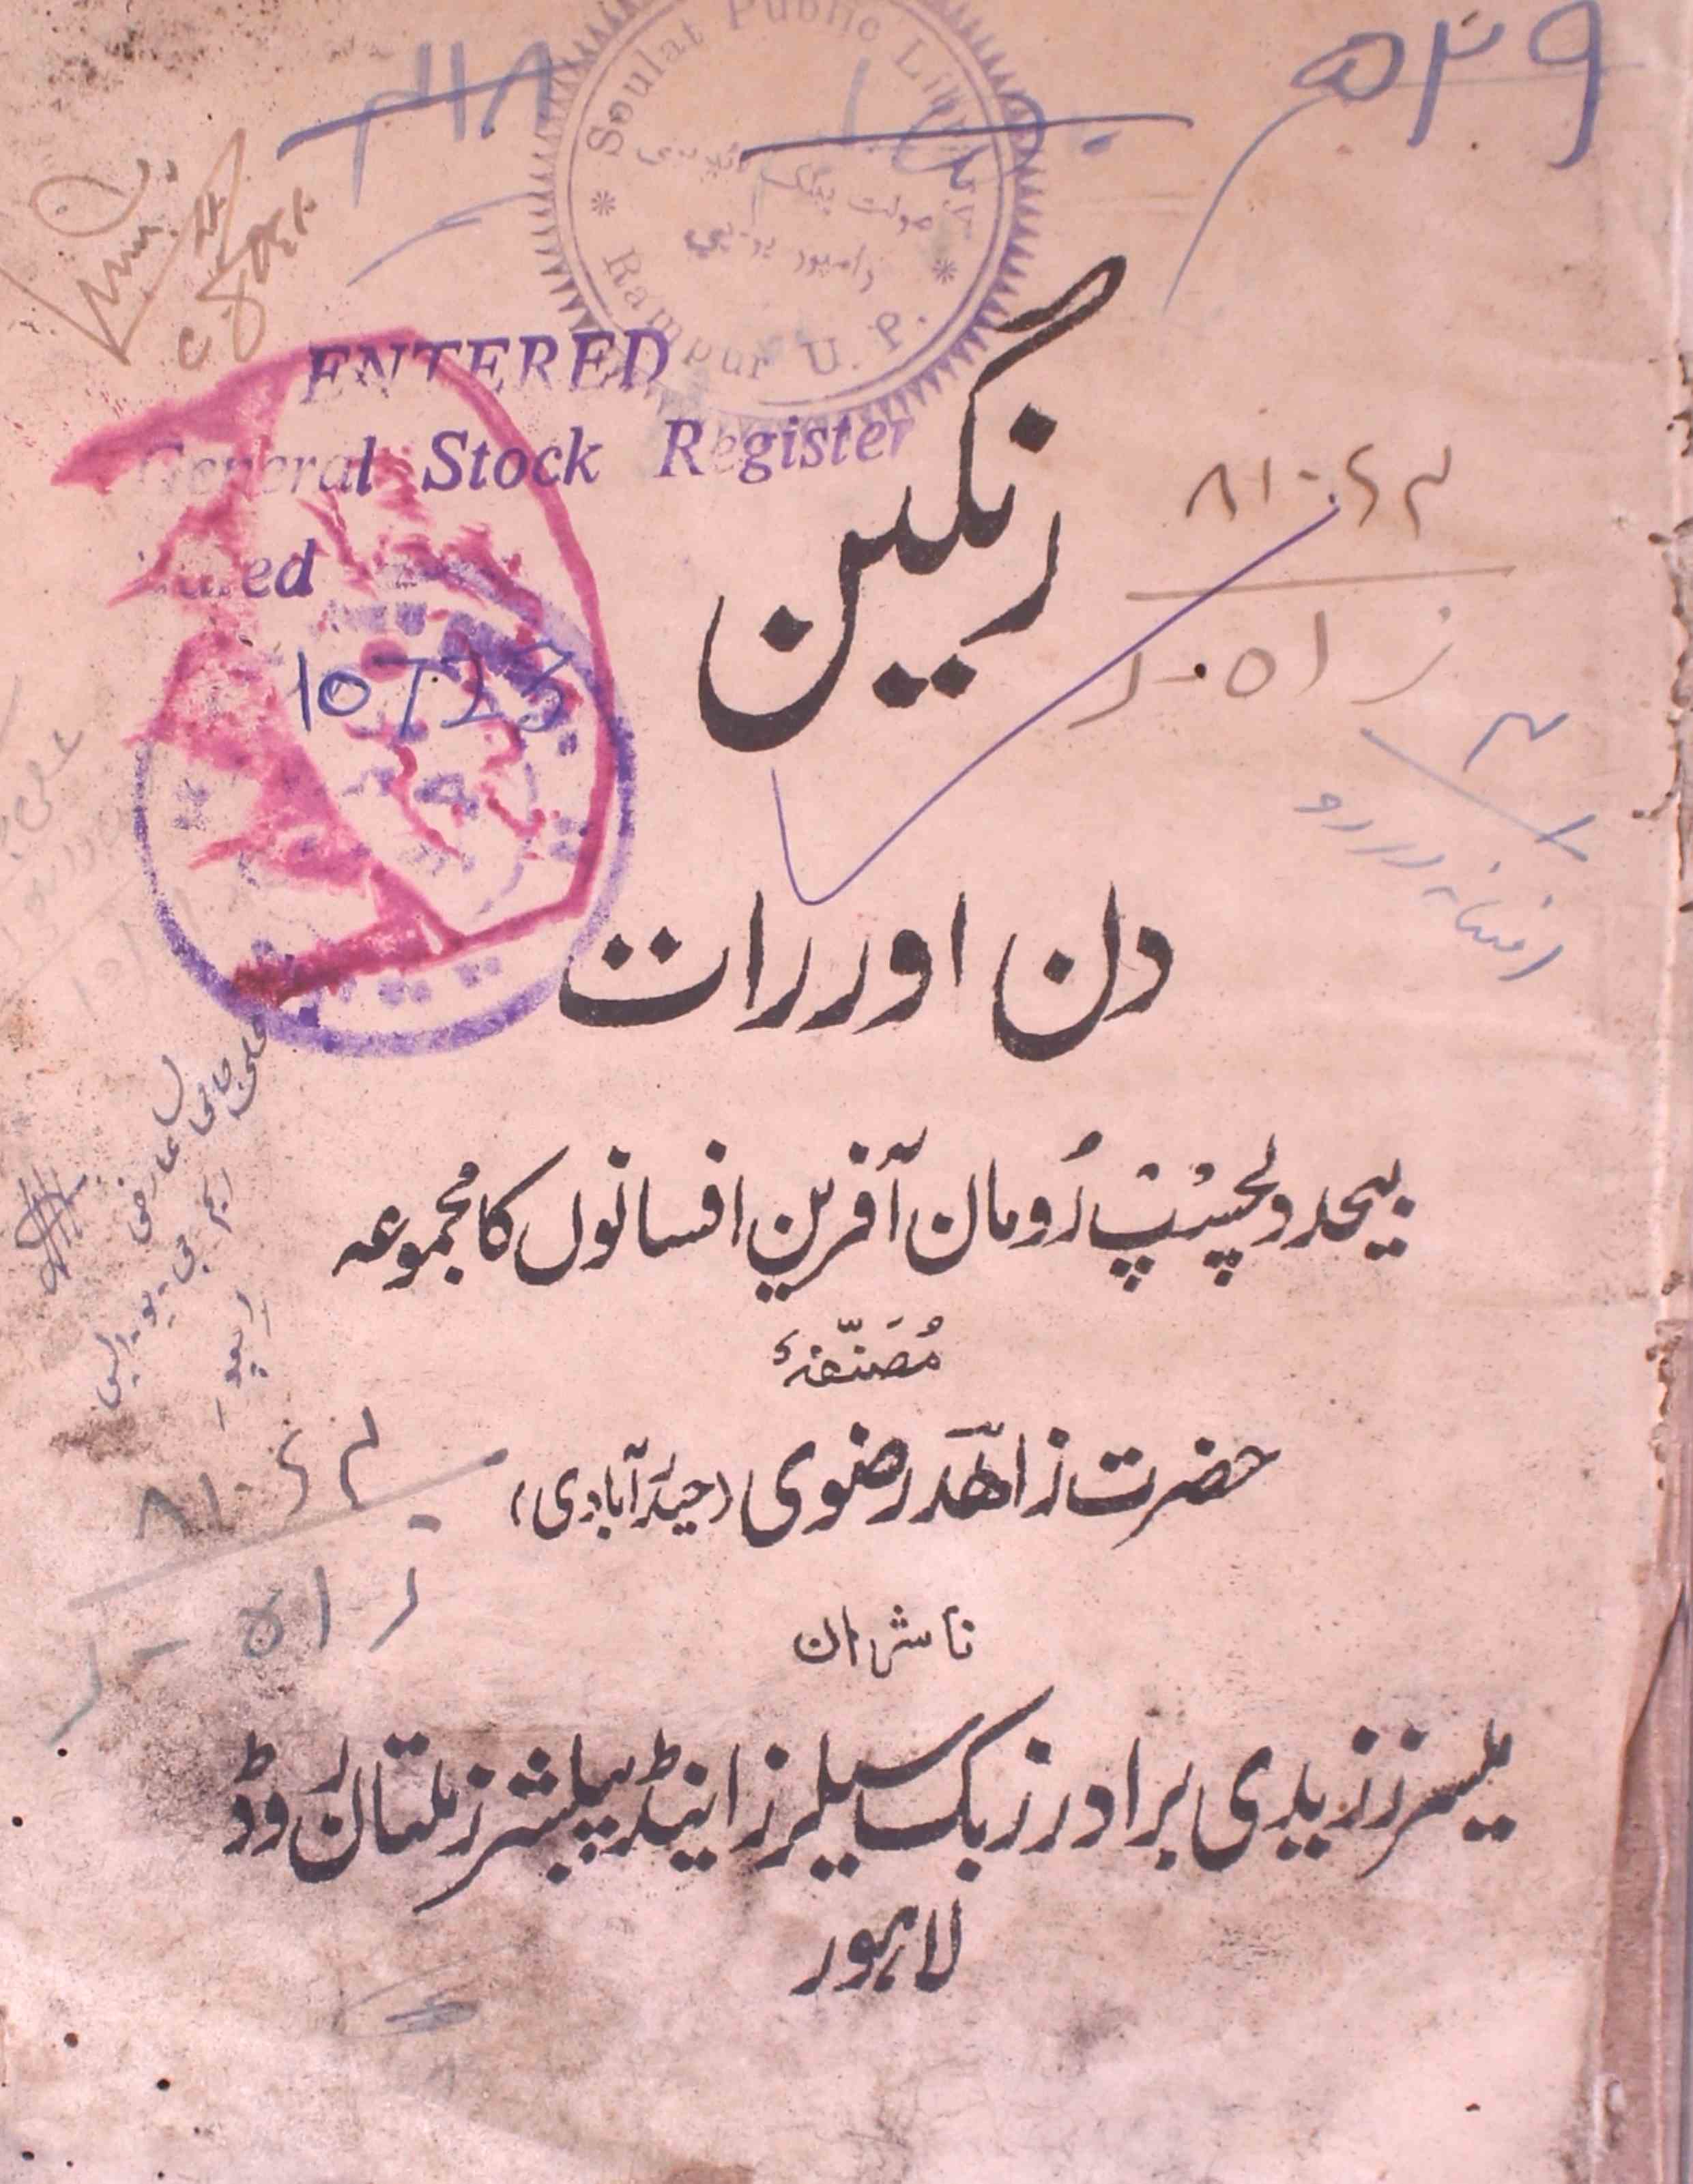 Soulat Public Library
صولت پبلک لائبریری
رامپور یو۔پی
Rampur U. P.
۵۴۹
ENTERED
General Stock Register
10723
رنگین
۸۱۰ء۳
زاہ۔ر
افسانہ اردو
دن اور رات
بیحد دلچسپ رُومان آفرین افسانوں کا مجموعہ
مُصَنّفۂ
حضرت زاہد رضوی (حیدرآبادی)
۸۱۰ء۳
زاہ۔ر
ناشران
میسرز زیدی برادرز بک سیلرز اینڈ پبلشرز ملتان روڈ
لاہور